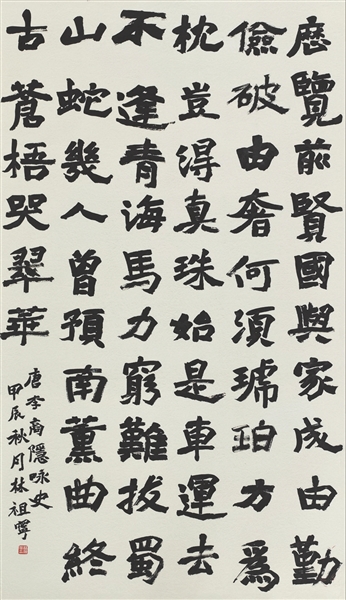 歷覽前賢國與家成由勤
儉破由奢何須琥珀方爲
枕豈得真珠始是車運去
不逢青海馬力窮難拔蜀
山蛇幾人曾預南薰曲終
古蒼梧哭翠華
唐李商隱咏史
甲辰秋月林祖寧